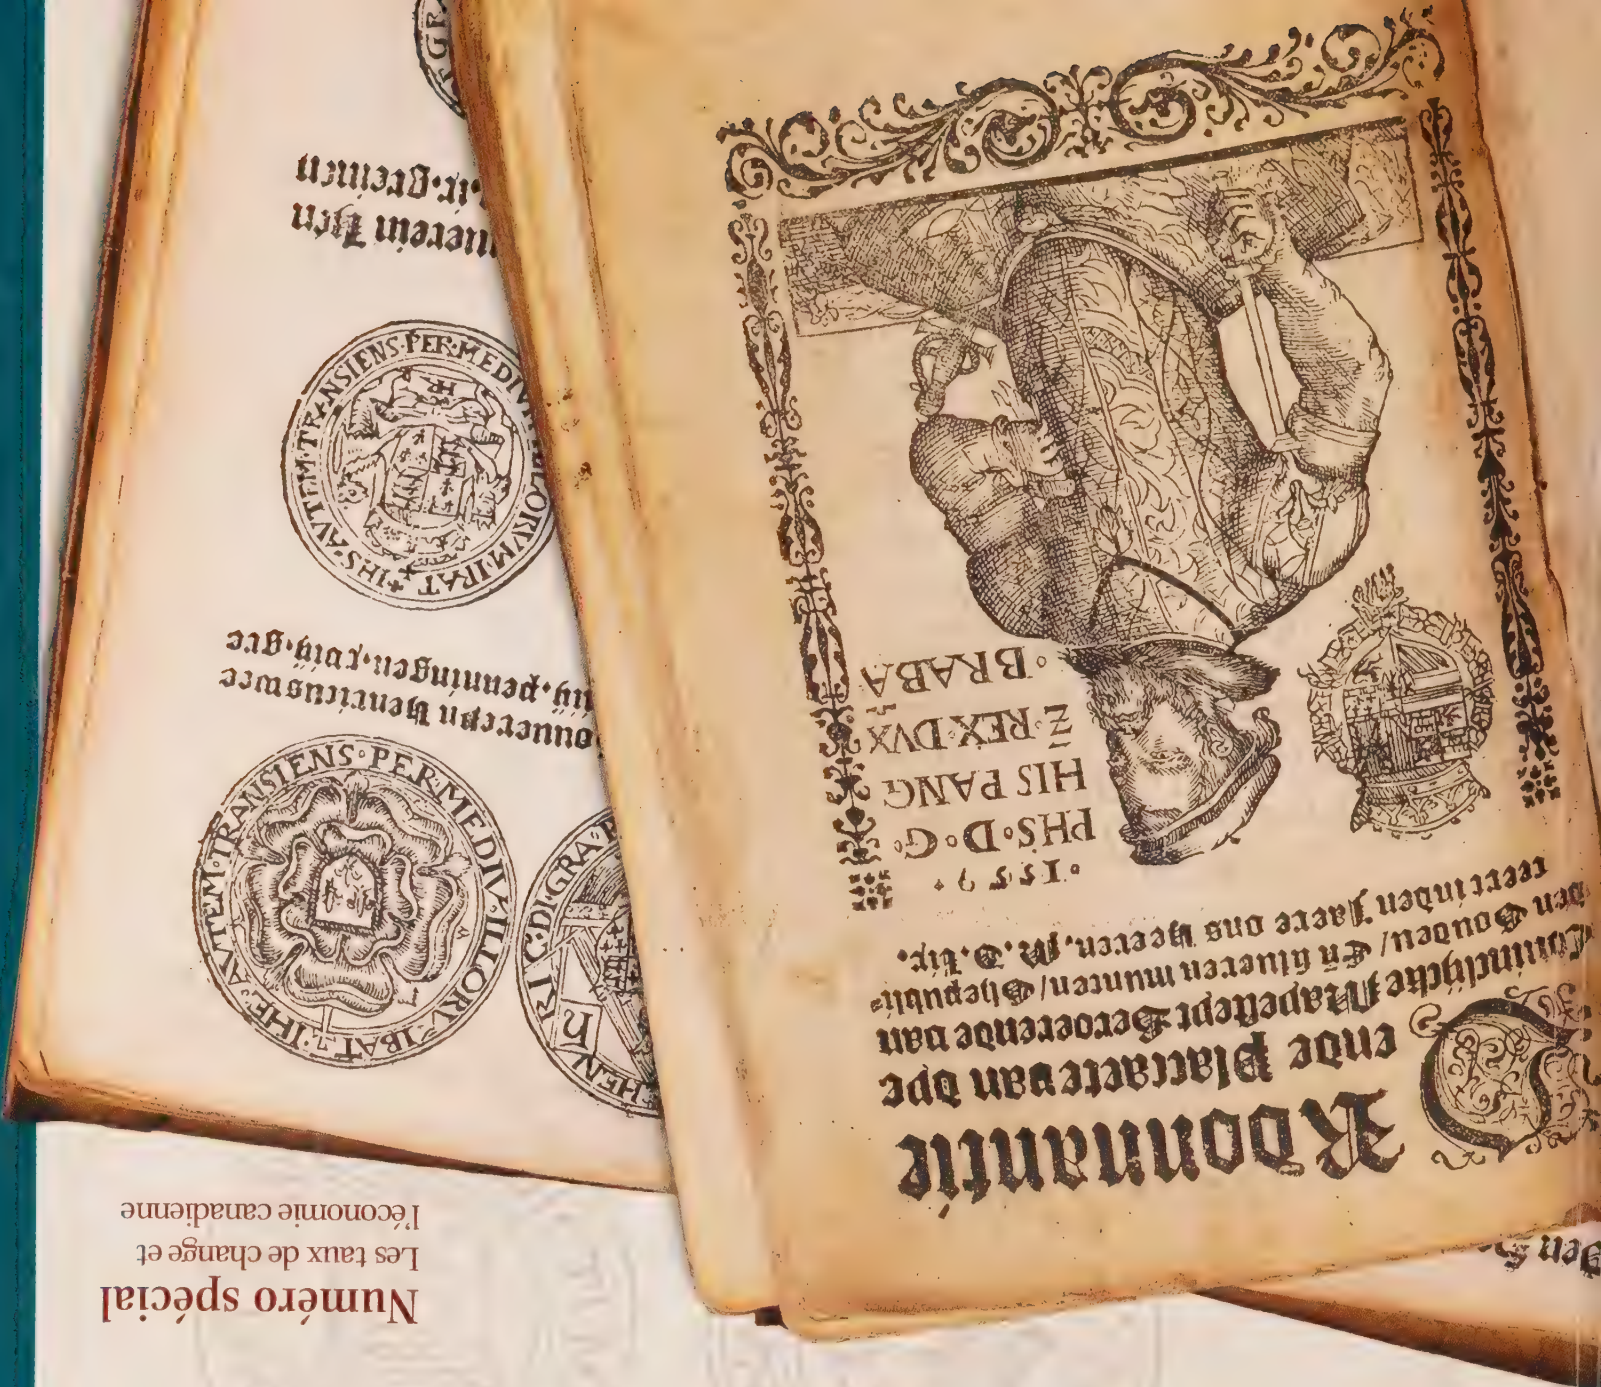 Numéro spécial
Les taux de change et
l'économie canadienne
Rdonnantie
ende Placcaete van dye
Conincklijcke Mayesteyt Beroerende van
den Gouden/ Eñ silueren munten/ Ghepubli-
ceert inden Jaere ons Heeren. M. D. lix.
·1559·
PHS·D·G·
HIS PANG
Z̄·REX·DVX
·BRABA
IHE·AVTEM·TRANSIENS·PER·MEDIV·ILLORV·IBAT
HENRIC·DI·GRA·
ouuereyn Henricus wee
penningen·
IHS·AVTEM·TRANSIENS·PER·MEDIV ILLORVM·IBAT
uerein Hen
Greinen
GRA